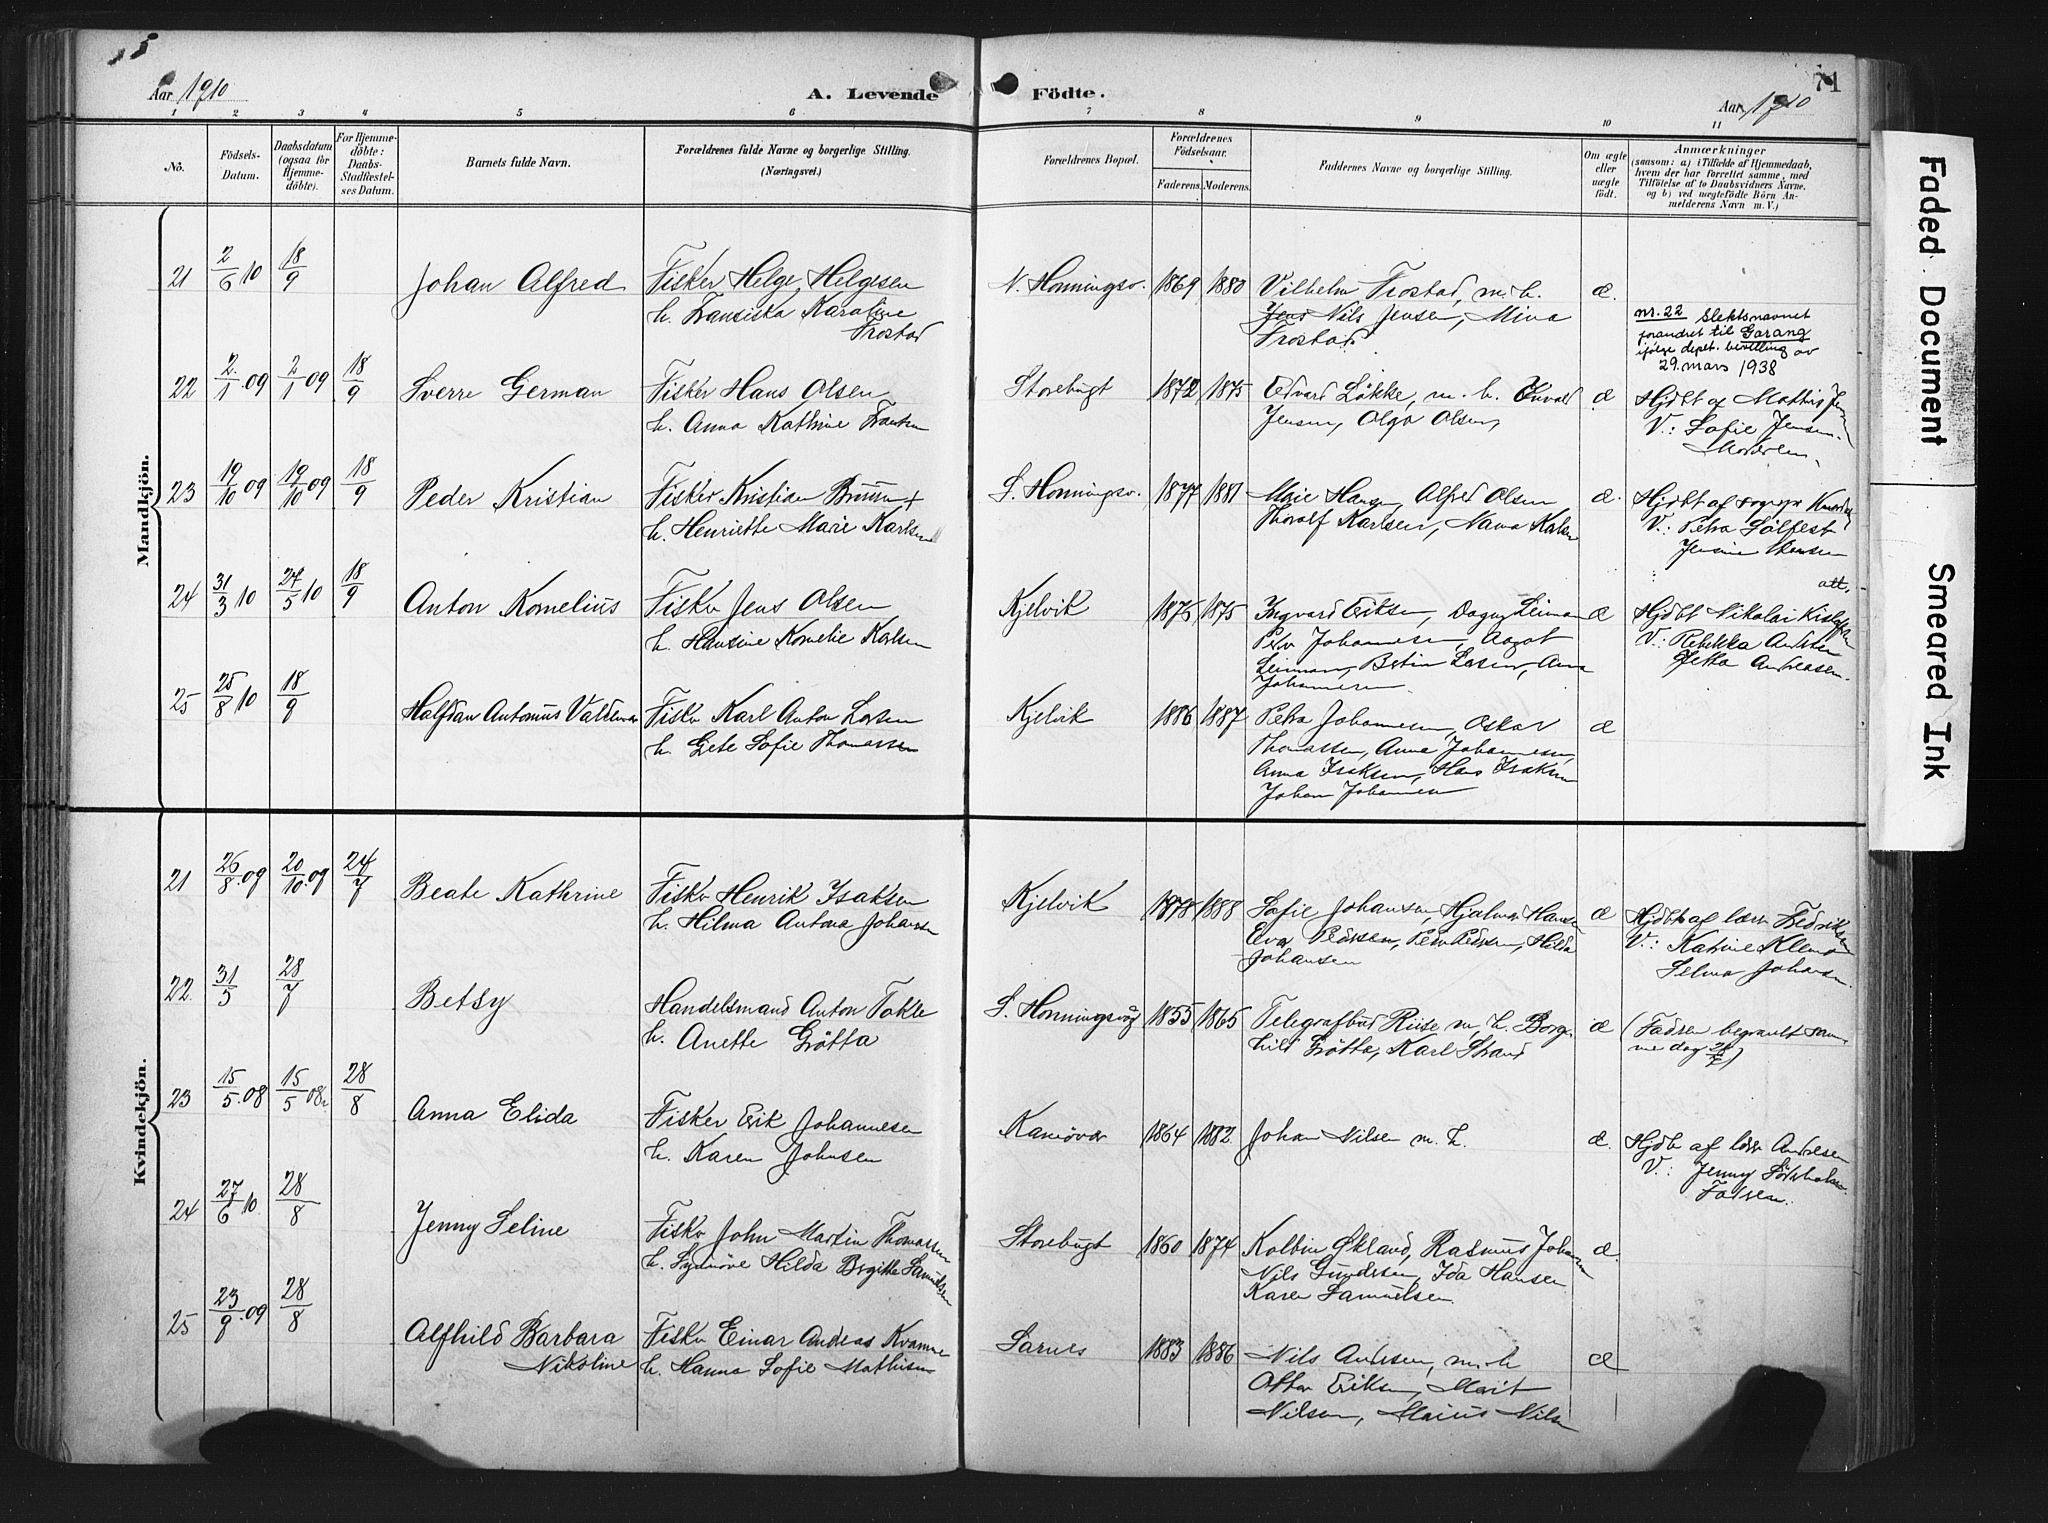 Aar 1910
A. Levende Födte.
Aar 1910
71
1 2 3 4 5 6 7 8 9 10 11
No.
Födsels-Datum.
Daabsdatum (ogsaa for Hjemme-döbte).
For Hjemme-döbte: Daabs-Stadfæstel-ses Datum.
Barnets fulde Navn.
Forældrenes fulde Navne og borgerlige Stilling. (Næringsvei.)
Forældrenes Bopæl.
Forældrenes Födselsaar.
Faderens. Moderens.
Faddernes Navne og borgerlige Stilling.
Om ægte eller uægte födt.
Anmærkninger
(saasom: a) i Tilfælde af Hjemmedaab,
hvem der har forrettet samme, med
Tilföielse af to Daabsvidners Navne,
og b) ved uægtefödte Börn An-
melderens Navn m. V.)
Mandkjön.
21 2/6 10 18/9 Johan Alfred Fisker Helge Helgesen N. Honningsv. 1869 1880 Vilhelm Trostad, m. h. æ.
h. Fransiska Karoline Jens Nils Jensen, Mina
Trostad Trostad
nr. 22 Slektsnavnet
forandret til Garang
ifølge dept. bevilling av
29. mars 1938
22 2/1 09 2/1 09 18/9 Sverre German Fisker Hans Olsen Storebugt 1872 1875 Edvard Løkke, m. h. æ Hjdbt af Mathis
h. Anna Kathrine Jensen, Olga Olsen, V.: Sofie Jensen
23 19/10 09 19/10 09 18/9 Peder Kristian Fisker Kristian Bruun + S. Honningsv. 1877 1881 Marie Hansen, Alfred Olsen æ. Hjdbt af
h. Henriette Marie Karlsen Thoralf Karlsen, V.: Petra Sølfest
24 31/3 10 24/5 10 18/9 Anton Kornelius Fisker Jens Olsen Kjelvik 1876 1875 Ingvard Eriksen, Dagny Leiman æ Hjdbt Nikolai
att,
h. Hansine Kornelie Karlsen Peder Johannesen, Aagot V.: Rebekka
Leiman, Betin Larsen, Anna Andreasen.
Johannesen
25 25/8 10 18/9 Halfdan Antonius Valdemar Fisker Karl Anton Larsen Kjelvik 1886 1887 Petra Johannesen, Oskar æ
h. Gete Sofie Thomassen Thomassen, Anna Johannesen,
Anna Isaksen, Hans Isaksen
Johan Johannesen
Kvindekjön.
21 26/8 09 20/10 09 24/7 Beate Kathrine Fisker Henrik Isaksen Kjelvik 1878 1888 Sofie Johansen, Hjalmar Hansen æ Hjdbt af lærer Fredriksen
h. Hilma Antona Johansen Eva Pedersen, Peder Pedersen, Hilda V.: Katrine
Johansen Selma Johansen.
22 31/5 28/7 Betsy Handelsmand Anton Takle S. Honningsvåg 1855 1865 Telegrafbud Riise m. h. Borg- æ (Faderen begravet sam-
h. Anette Grøtta hild Grøtta, Karl Strand me dag 28/7)
23 15/5 08 15/5 08 28/8 Anna Elida Fisker Erik Johannesen Kamøvær 1864 1882 Johan Nilsen m. h. æ. Hjdb af lærer Andresen
h. Karen Johnsen V.: Jenny
Faderen.
24 27/6 10 28/8 Jenny Seline Fisker John Martin Thomassen Storebugt 1860 1874 Kolbin Økland, Rasmus Johansen æ.
h. Synnøve Hilda Birgitte Samuelsen Nils Gundersen, Ida Hansen
Karen Samuelsen.
25 23/9 09 28/8 Alfhild Barbara Fisker Einar Andreas Kvamme Sarnes 1883 1886 Nils Andersen, m. h. æ
Nikoline h. Hanna Sofie Mathisen Ottar Eriksen, Marit
Nilsen, Marius Nilsen
Faded Document
Smeared Ink